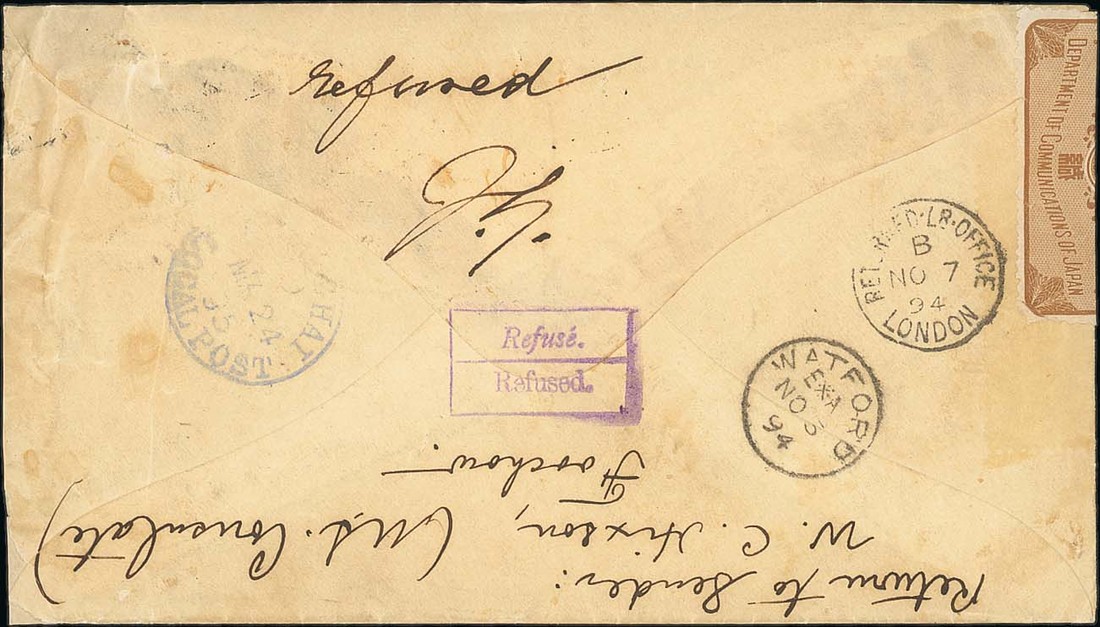 refused
DEPARTMENT OF COMMUNICATIONS OF JAPAN
RET LR. OFFICE
B
NO 7
94
LONDON
HAI
LOCAL POST
24
Refusé.
Refused.
WATFORD
NO 5
94
Return to Sender:
W. C. Hixson, (U.S. Consulate)
Foochow.